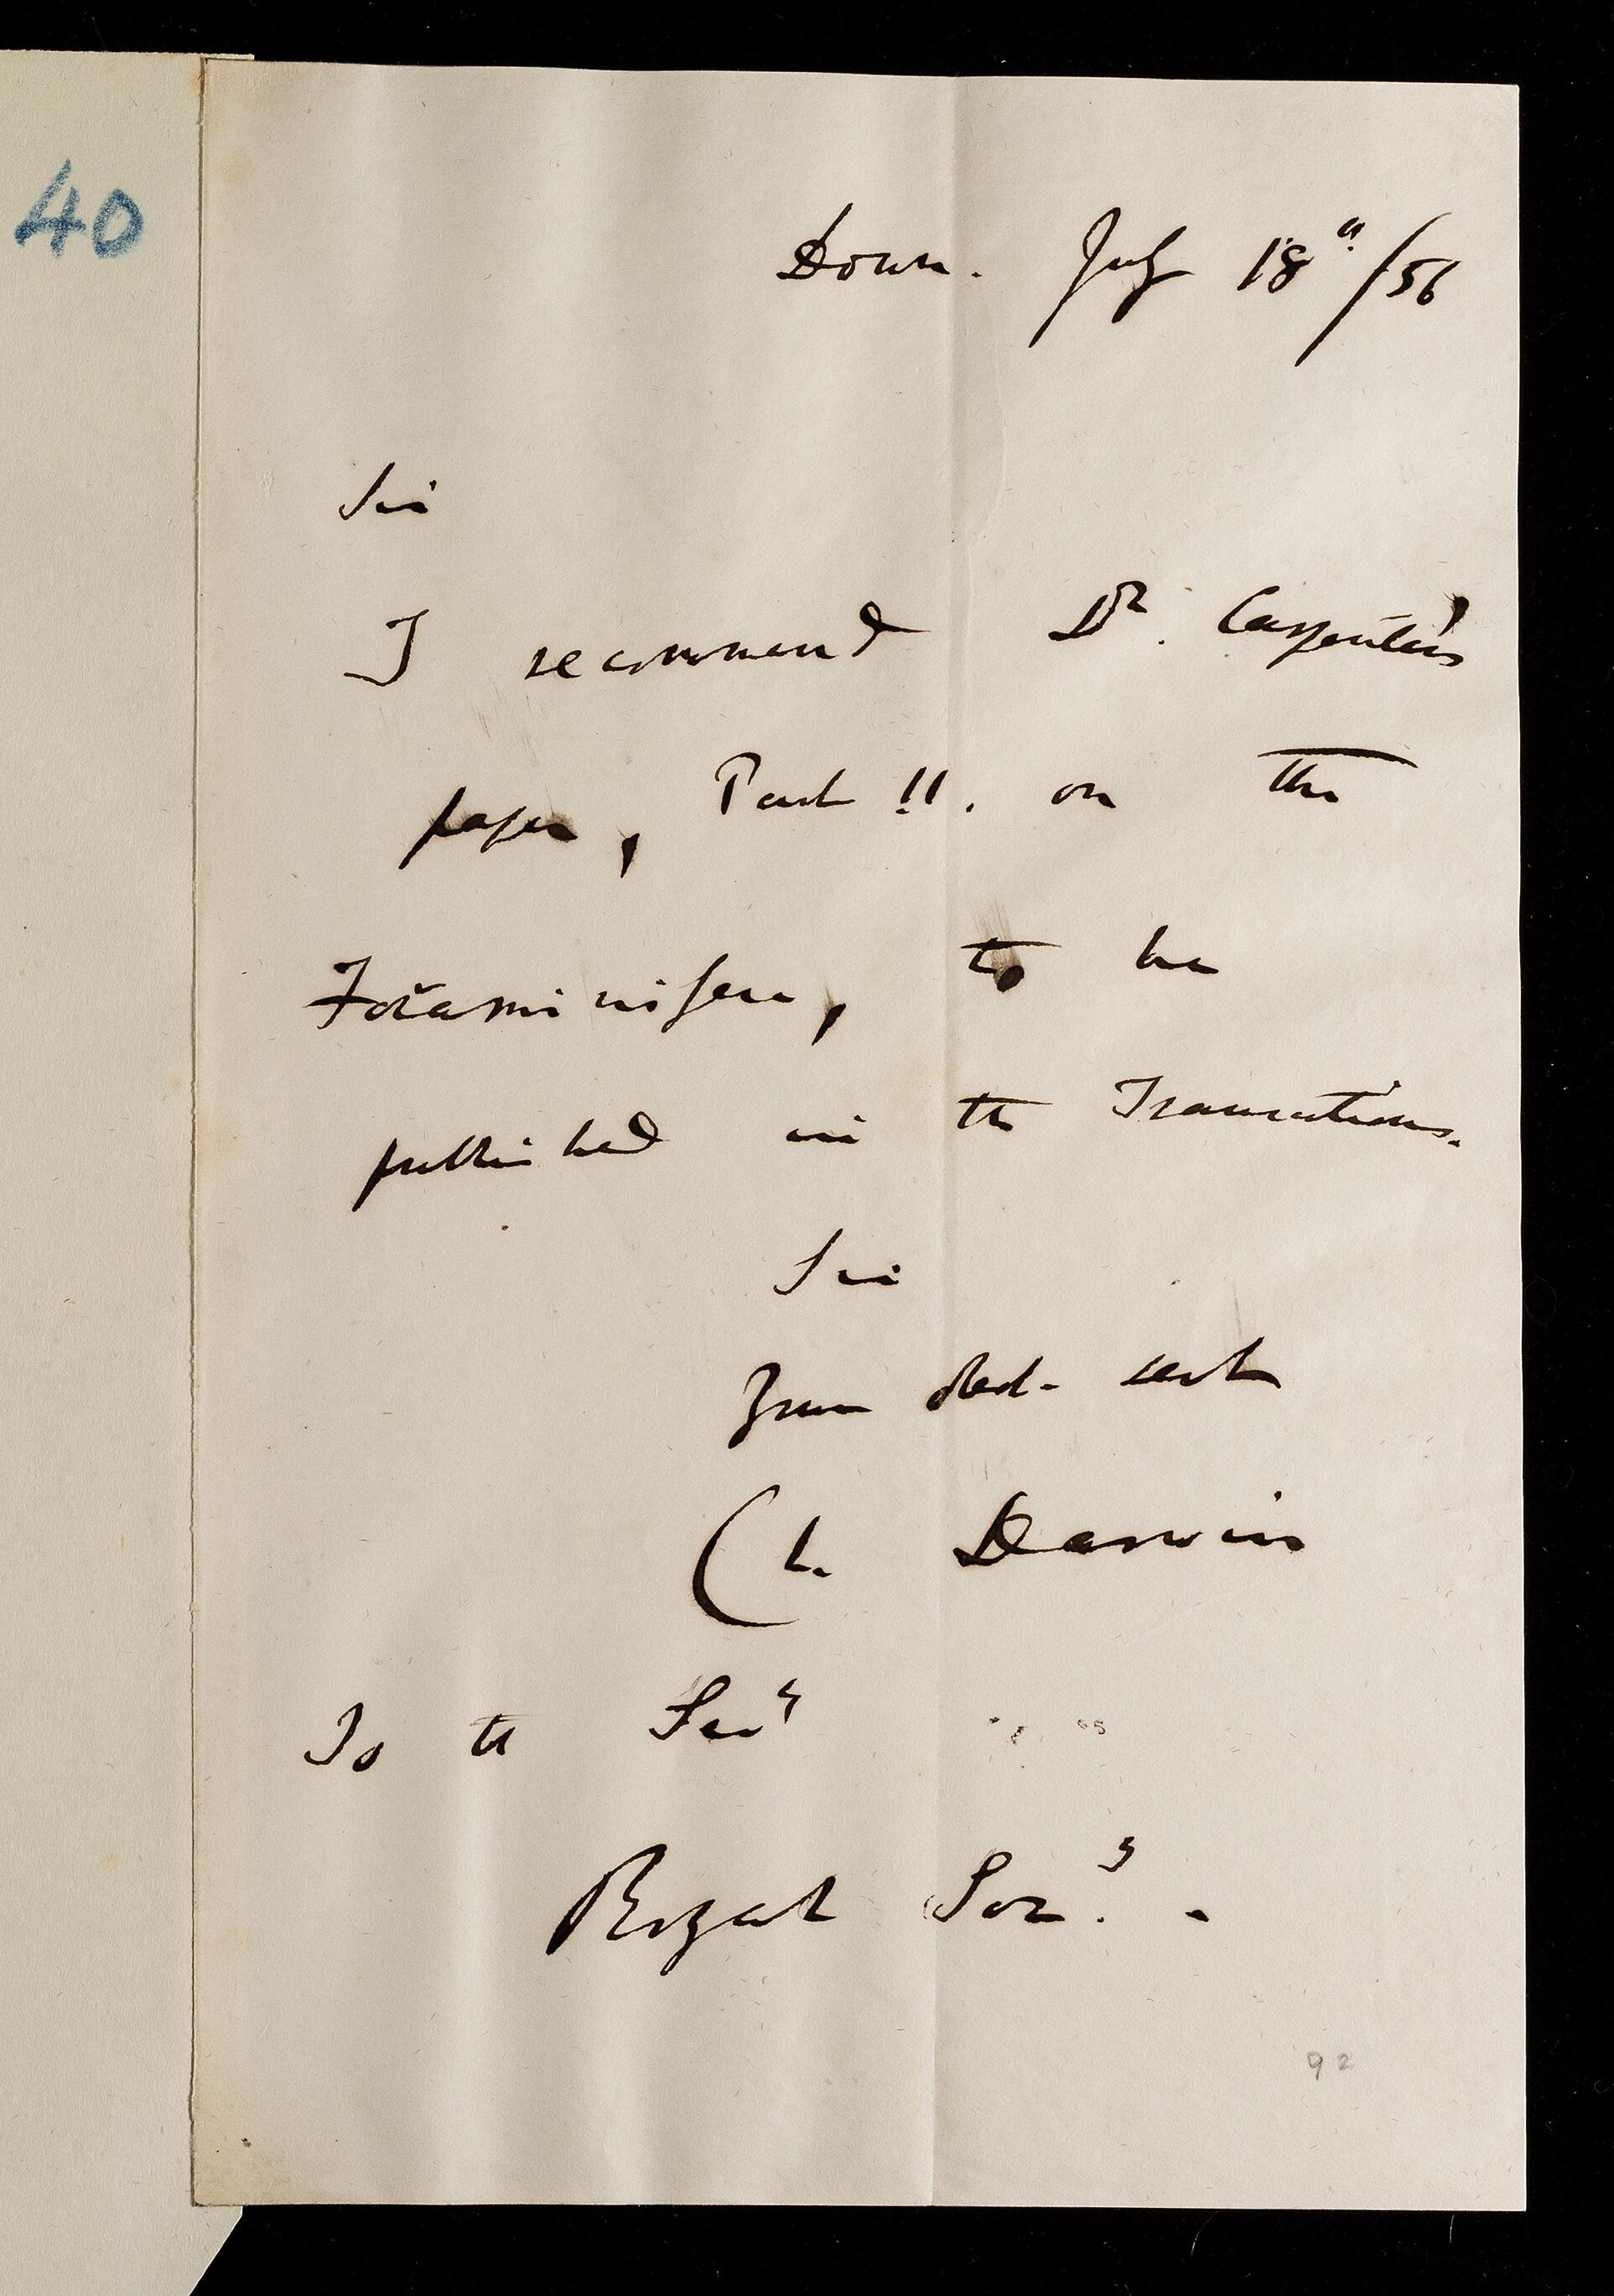 40
Down. July 18th/56
Sir
I recommend Dr. Carpenter's
paper, Part II. on the
Foraminifera, to be
published in the Transactions.
Sir
Your obed. servt
Ch. Darwin
To the Secy
Royal Socy. -
92